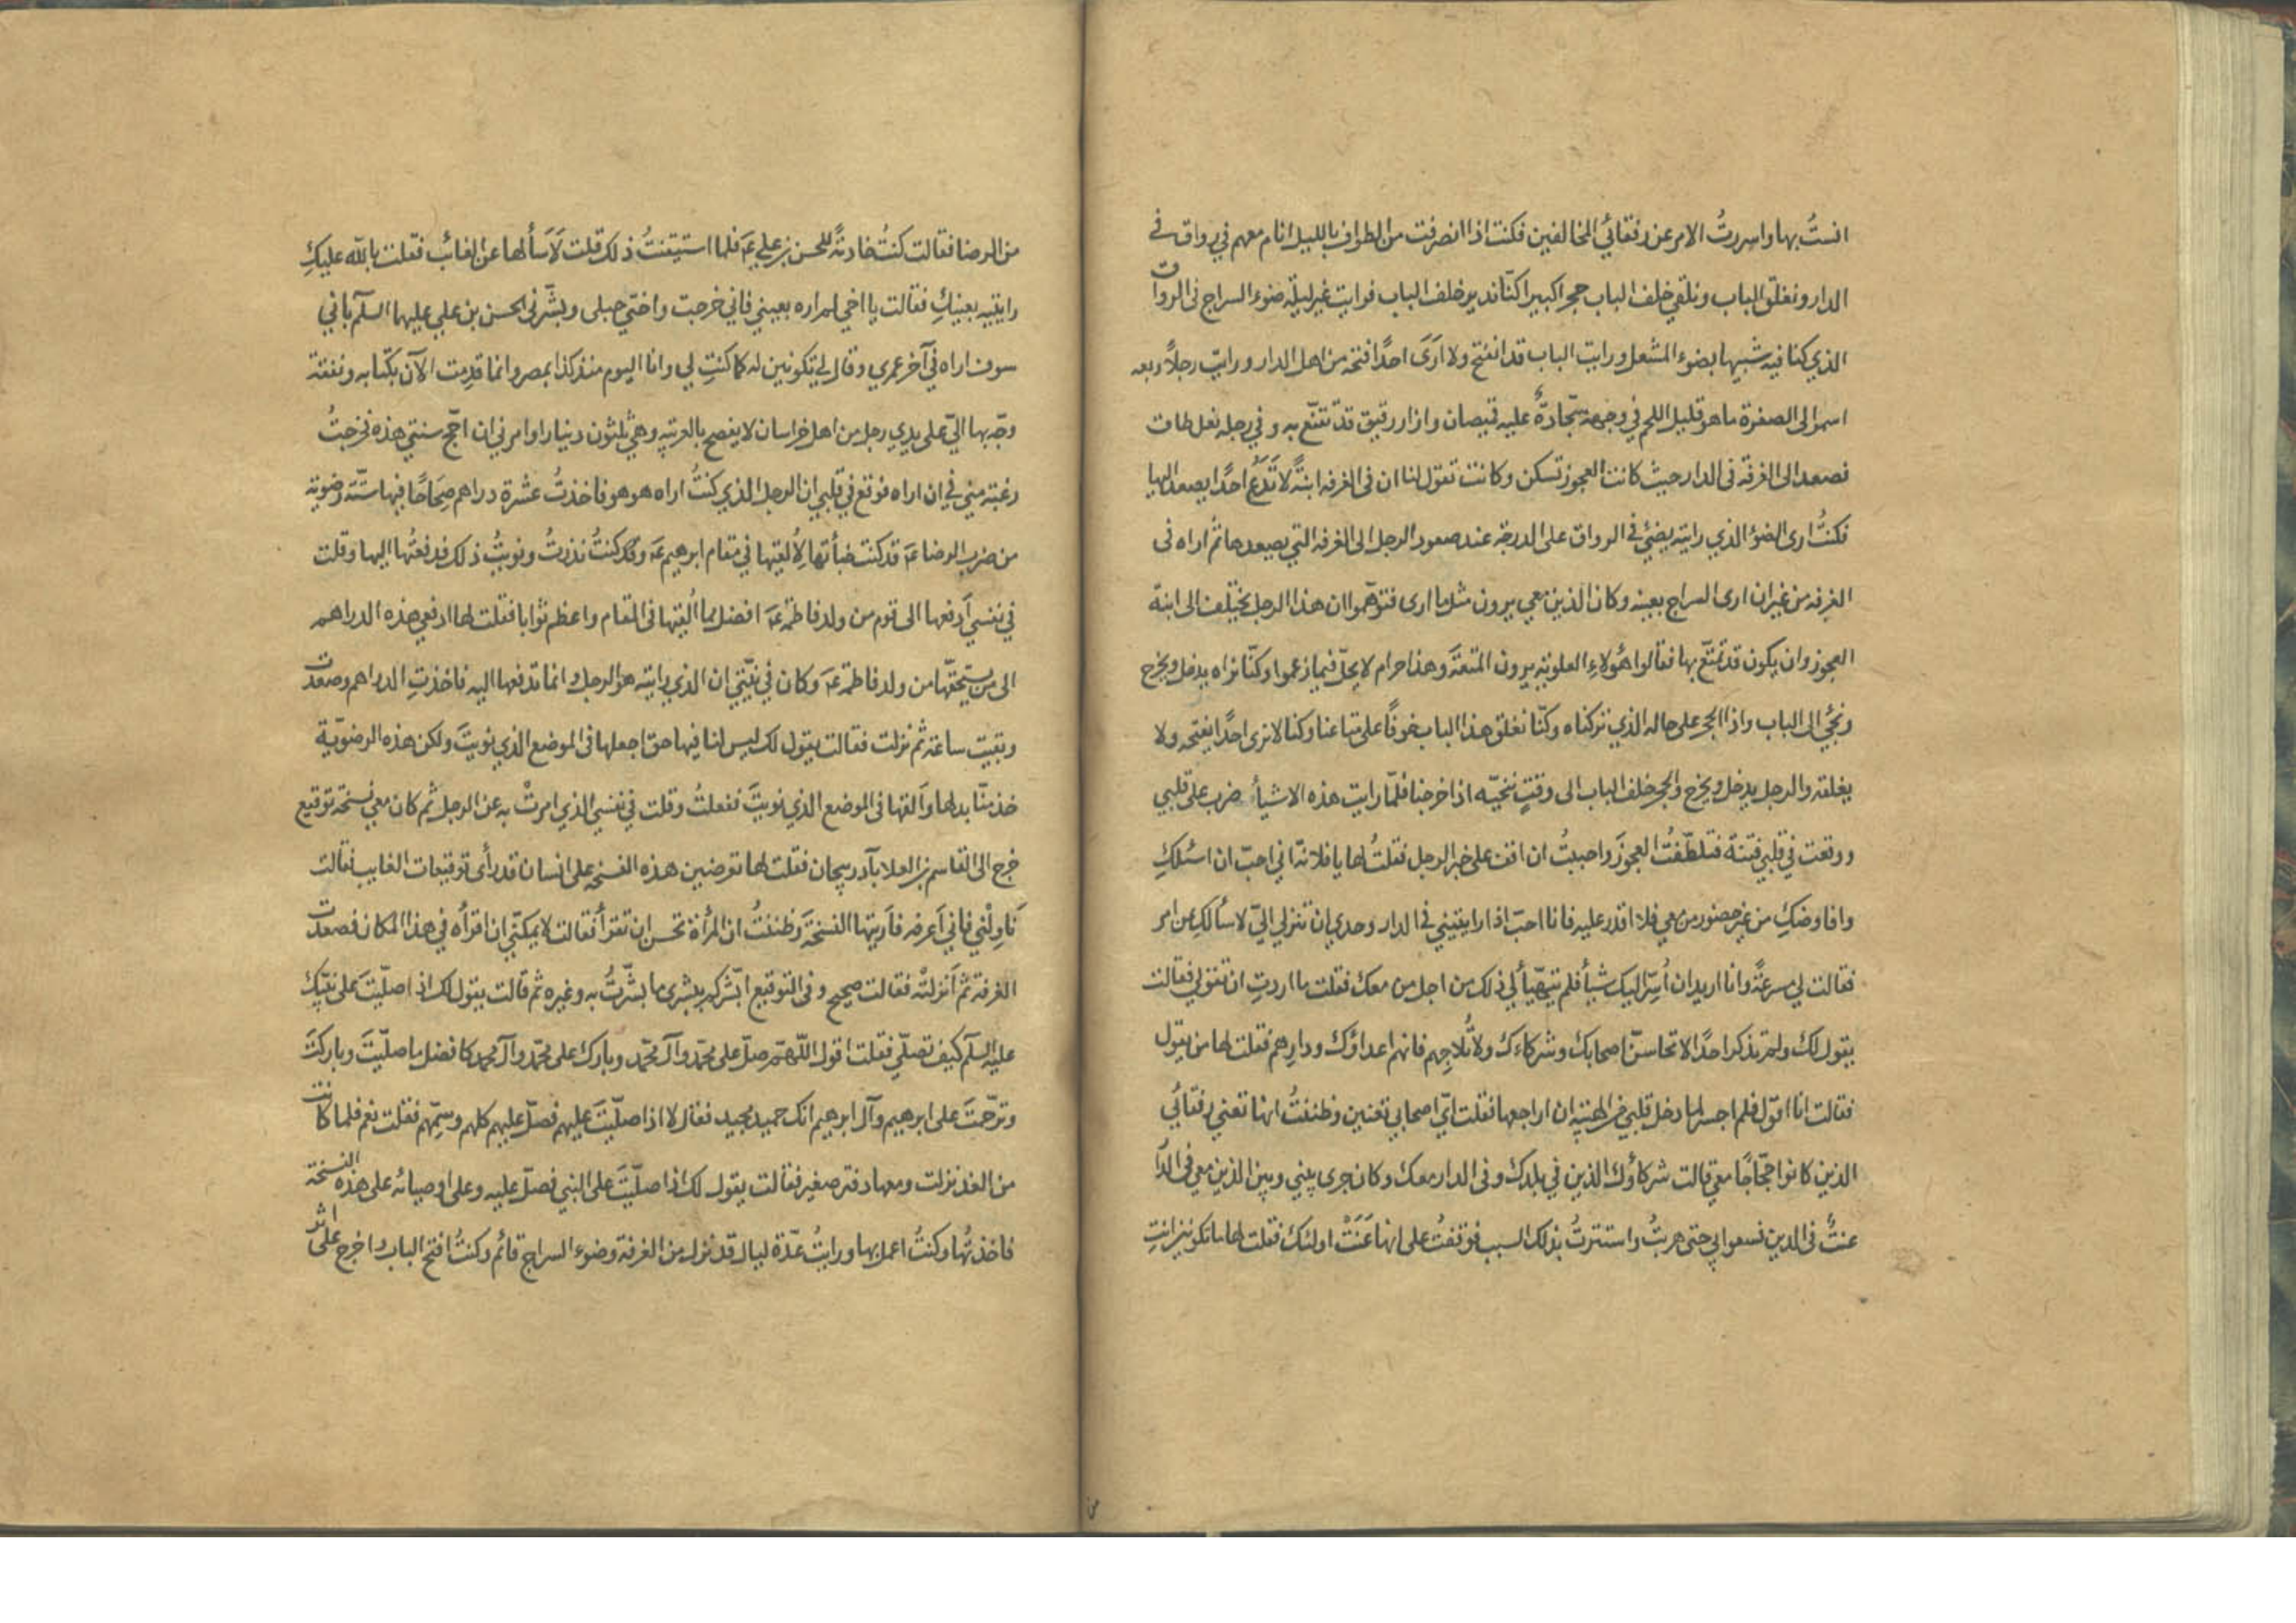 انستُ بها واسررتُ الامر عن رفقائي المخالفين فكنت اذا انصرفت من الطواف بالليل انام معهم في رواق في
الدار ونغلق الباب ونلقي خلف الباب حجرا كبيرا كنّا نديره خلف الباب فرايت غير ليلة ضوء السراج في الرواق
الذي كنا فيه شبيها بضوء المشعل ورايت الباب قد انفتح ولا ارَى احدًا فتحه من اهل الدار ورايت رجلاً ربعه
اسمر الى الصفرة ما هو قليل اللحم في وجهه سجّادةٌ عليه قميصان وازار رقيق قد تقنّع به وفي رجله نعل طاق
فصعد الى الغرفة في الدار حيث كانت العجوز تسكن وكانت تقول لنا ان في الغرفه ابنةً لا تَدَعُ احدًا يصعد اليها
فكنتُ ارى الضوء الذي رايته يضئ في الرواق على الدرجة عند صعود الرجل الى الغرفه التي يصعدها ثم اراه في
الغرفه من غير ان ارى السراج بعينه وكان الذين معي يرون مثل ما ارى فتوهّموا ان هذا الرجل يختلف الى ابنة
العجوز وان يكون قد تمتّع بها فقالوا هؤلاءِ العلويّه يرون المتعةَ وهذا حرام لا يحلّ فيما زعموا وكنّا نراه يدخل ويخرج
ونجئ الى الباب واذا الحجر على حاله الذي تركناه وكنّا نغلق هذا الباب خوفًا على متاعنا وكنا لا نرى احدًا يفتحه ولا
يغلقه والرجل يدخل ويخرج والحجر خلف الباب الى وقتٍ ننحّيه اذا خرجنا فلمّا رايت هذه الاشيأ ضرب على قلبي
ووقعت في قلبي فتنة فتلطّفتُ العجوزَ واحببتُ ان اقف على خبر الرجل فقلتُ لها يا فلانة اني احبّ ان اسئلكِ
وافاوضكِ من غير حضور من معي فلا اقدر عليه فانا احبّ اذا رايتيني في الدار وحدي ان تنزلي اليّ لاسألكِ عن امر
فقالت لي مسرعةً وانا اريد ان اُسِرّ اليك شيأ فلم يتهيّأ لي ذلك من اجل من معك فقلت ما اردتِ ان تقولي فقالت
يقول لك ولم تذكر احدًا لا تخاشننّ اصحابك وشركاءَك ولا تُلاحِهم فانهم اعداؤك ودارِهم فقلت لها من يقول
فقالت انا اقول فلم اجسر لما دخل قلبي من الهيبه ان اراجعها فقلت ايّ اصحابي تعنين وظننتُ انها تعني رفقائي
الذين كانوا حجّاجًا معي قالت شركاؤك الذين في بلدك وفي الدار معك وكان جرى بيني وبين الذين معي في الدار
عنتٌ في الدين فسعوا بي حتى هربتُ واستترتُ بذلك السبب فوقفتُ على انها عَنَتْ اولئك فقلت لها ما تكونين انتِ
من
من الرضا فقالت كنتُ خادمةً للحسن بن علي عَ فلما استيقنتُ ذلك قلت لَاَسألها عن الغائب فقلت بالله عليكِ
رايتِيه بعينكِ فقالت يا اخي لم اراه بعيني فاني خرجت واختي حبلى وبشّرني الحسن بن علي عليهما السلم باني
سوف اراه في آخر عمري وقال لي تكونين له كما كنتِ لي وانا اليوم منذ كذا بمصر وانما قدمت الآن بكتابه ونفقة
وجّه بها اليّ على يدي رجل من اهل خراسان لا يفصح بالعربيّه وهي ثلثون دينارا وامرني ان احجّ سنتي هذه فخرجتُ
رغبةً مني في ان اراه فوقع في قلبي ان الرجل الذي كنتُ اراه هو هو فاخذتُ عشرة دراهم صِحَاحًا فيها ستّة رضويّة
من ضرب الرضا عَ قد كنت خبأتها لِاُلقيها في مقام ابرهيم عَ وكنتُ نذرتُ ونويتُ ذلك فدفعتُها اليها وقلت
في نفسي اَدفعها الى قوم من ولد فاطمة عَ افضل مما اُلقيها في المقام واعظم ثوابا فقلت لها ادفعي هذه الدراهم
الى من يستحقّها من ولد فاطمة عَ وكان في نيّتي ان الذي رايته هو الرجل وانما تدفعها اليه فاخذتِ الدراهم وصعدت
وبقيت ساعة ثم نزلت فقالت يقول لك ليس لنا فيها حق اجعلها في الموضع الذي نويتَ ولكن هذه الرضويّة
خذ منّا بدلها واَلقها في الموضع الذي نويتَ ففعلتُ وقلت في نفسي الذي امرتْ به عن الرجل ثم كان معي نسخة توقيع
خرج الى القاسم بن العلا بآذربيجان فقلت لها تعرضين هذه النسخه على انسان قد رأى توقيعات الغايب فقالت
نَاوِلْني فاني اَعرفه فاَريتها النسخةَ وظننتُ ان المرأة تحسن ان تقرأ فقالت لا يمكنّي ان اقرأه في هذا المكان فصعدت
الغرفه ثم اَنزلتْه فقالت صحيح وفي التوقيع ابشّركم ببشرى ما بشّرتُ به وغيره ثم قالت يقول لك اذا صلّيتَ على نبيّك
عليه السلم كيف تصلّي فقلت اقول اللّهمّ صلّ على محمّد وآل محمّد وبارك على محمّد وآل محمد كافضل ما صلّيتَ وباركتَ
وترحّمتَ على ابرهيم وآل ابرهيم انك حميد مجيد فقال لا اذا صلّيتَ عليهم فصلّ عليهم كلهم وسمّهم فقلت نعم فلما كانت
من الغد نزلت ومعها دفتر صغير فقالت يقول لك اذا صلّيتَ على النبي فصلّ عليه وعلى اوصيائه على هذه النسخة
فاخذتُها وكنتُ اعمل بها ورايتُ عدّة ليال قد نزل من الغرفة وضوء السراج قائم وكنتُ افتح الباب واخرج على اثر